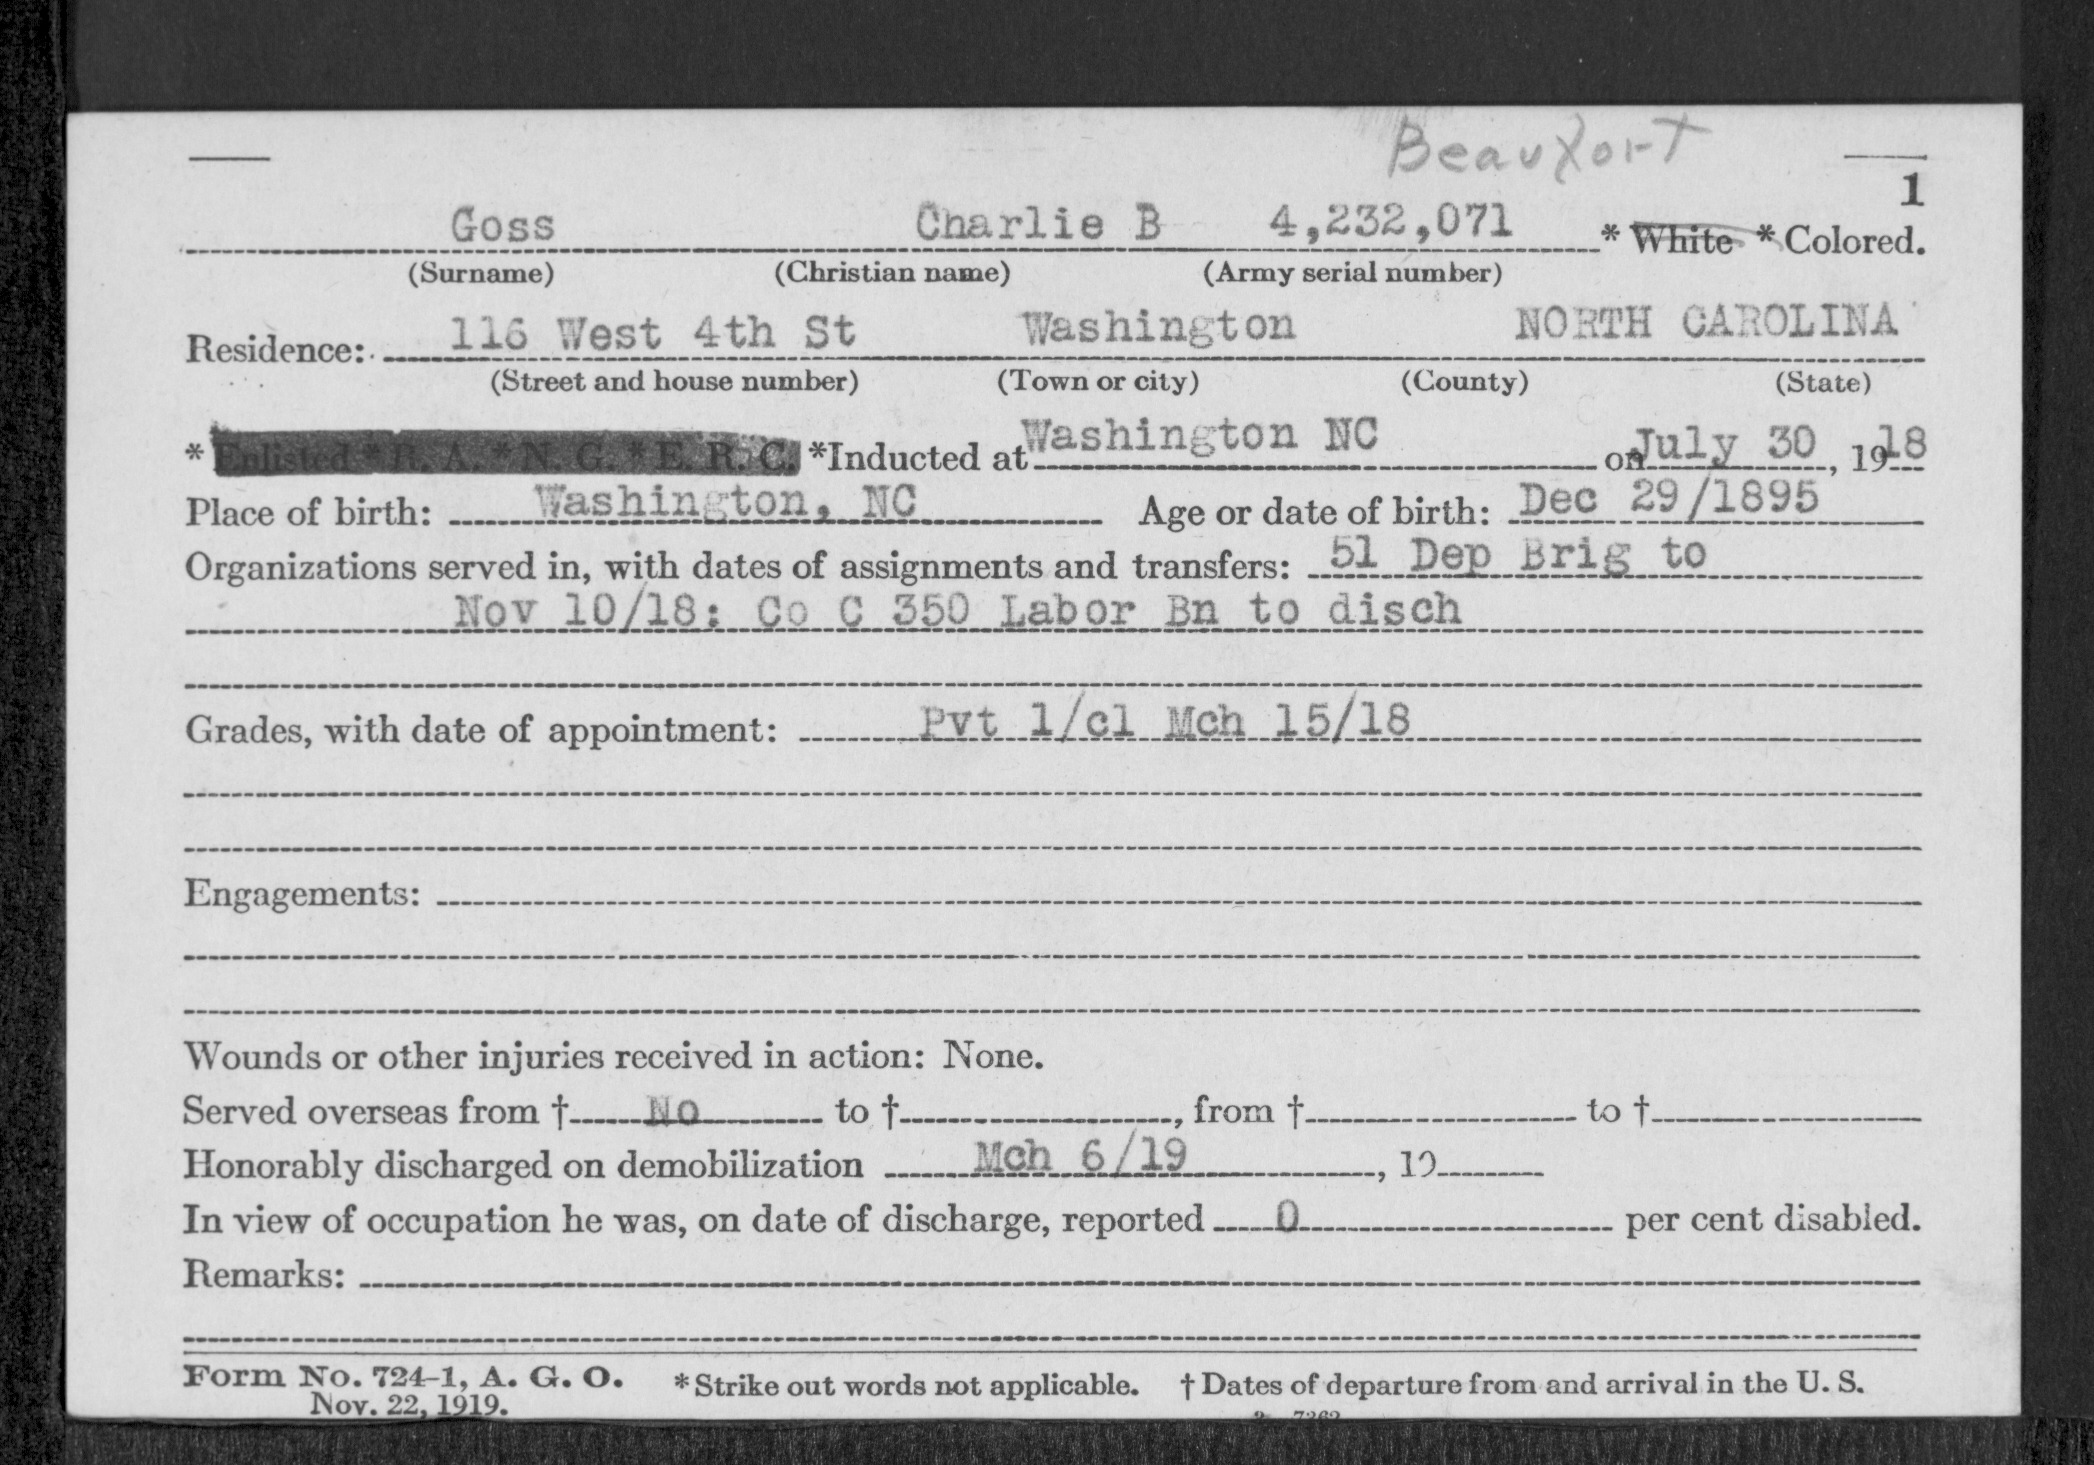 Beaufort
1
Goss Charlie B 4,232,071 * White * Colored.
(Surname) (Christian name) (Army serial number)
Residence: 116 West 4th St Washington NORTH CAROLINA
(Street and house number) (Town or city) (County) (State)
* Enlisted * R. A. * N. G. * E. R. C. *Inducted at Washington NC on July 30, 1918
Place of birth: Washington, NC Age or date of birth: Dec 29/1895
Organizations served in, with dates of assignments and transfers: 51 Dep Brig to
Nov 10/18: Co C 350 Labor Bn to disch
Grades, with date of appointment: Pvt 1/cl Mch 15/18
Engagements:
Wounds or other injuries received in action: None.
Served overseas from † No to †, from † to †
Honorably discharged on demobilization Mch 6/19, 19
In view of occupation he was, on date of discharge, reported 0 per cent disabled.
Remarks:
Form No. 724-1, A. G. O. * Strike out words not applicable. † Dates of departure from and arrival in the U. S.
Nov. 22, 1919.